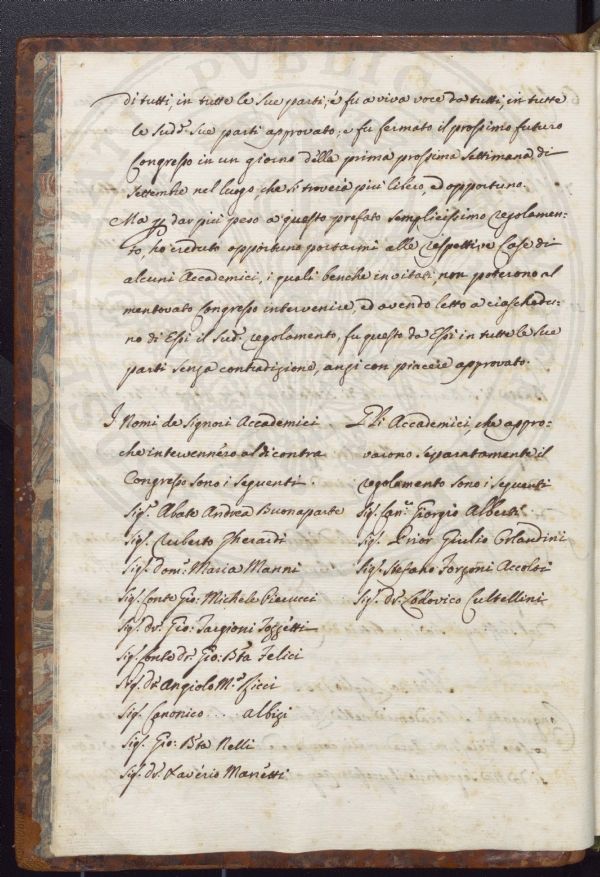 di tutti, in tutte le sue parti; e fu a viva voce da tutti, in tutte
le sud.e sue parti approvato; e fu fermato il prossimo futuro
Congresso in un giorno della prima prossima Settimana di
Settembre nel luogo, che si troverà più libero, ed opportuno.
Ma p dar più peso a questo prefato semplicissimo regolamen-
to, ho creduto opportuno portarmi alle respettive Case di
alcuni Accademici, i quali benche invitati, non poterono al
mentovato Congresso intervenire, ed avendo letto a ciaschedu-
no di Essi il Sud.o regolamento, fu questo da Essi in tutte le sue
parti senza contradizione, anzi con piacere approvato.
I Nomi de Signori Accademici
che intervennero al di contra
Congresso sono i seguenti.
Sig.e Abate Andrea Buonaparte
Sig.e Ruberto Gherardi
Sig.e Dom.o Maria Manni
Sig.e Conte Gio: Michele Pierucci
Sig.e dr. Gio: Targioni Tozzetti
Sig.e Conte dr. Gio: Bta Felici
Sig.e dr. Angiolo M.a Ricci
Sig.e Canonico .... Albizi
Sig.e Gio: Bta Nelli
Sig.e dr. Xaverio Manetti
Gli Accademici, che appro-
varono separatamente il
regolamento sono i seguenti
Sig.e Can.o Giorgio Alberti
Sig.e Prior Giulio Orlandini
Sig.e Stefano Forzoni Accolti
Sig.e dr. Lodovico Cultellini